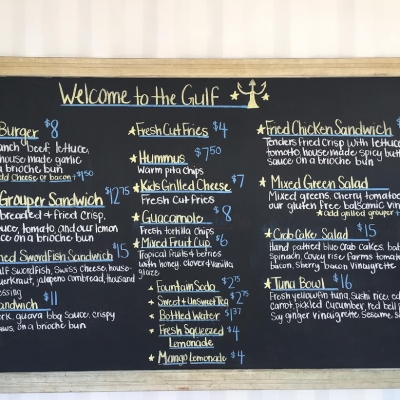 Welcome to the Gulf
Burger $8
ranch beef, lettuce,
house made garlic
a brioche bun
add cheese or bacon + $1.50
Grouper Sandwich $12.75
breaded & fried crisp,
tomato, and our lemon
on a brioche bun
Swordfish Sandwich $15
Swordfish, Swiss cheese, house-
jalapeno cornbread, thousand
$11
guava bbq sauce, crispy
on a brioche bun
Fresh Cut Fries $4
Hummus $7.50
Warm pita chips
Kids Grilled Cheese $7
Fresh Cut Fries
Guacamole $8
Fresh tortilla chips
Mixed Fruit Cup $6
Tropical fruits & berries
with honey, clover & vanilla
glaze
Fountain Soda $2.75
Sweet & Unsweet Tea $2.75
Bottled Water $1.37
Fresh Squeezed
Lemonade $4
Mango Lemonade $4
Fried Chicken Sandwich $
Tenders fried crisp with lettuce
tomato, house made spicy
sauce on a brioche bun
Mixed Green Salad
Mixed greens, cherry tomato,
our gluten free balsamic
add grilled grouper +
Crab Cake Salad $15
Hand pattied blue crab cakes, bab
Spinach, Covey rise farms tomato
bacon, Sherry bacon vinaigrette.
Tuna Bowl $16
Fresh yellowfin tuna, Sushi rice,
carrot, pickled cucumber, red bell
Soy ginger vinaigrette, Sesame,